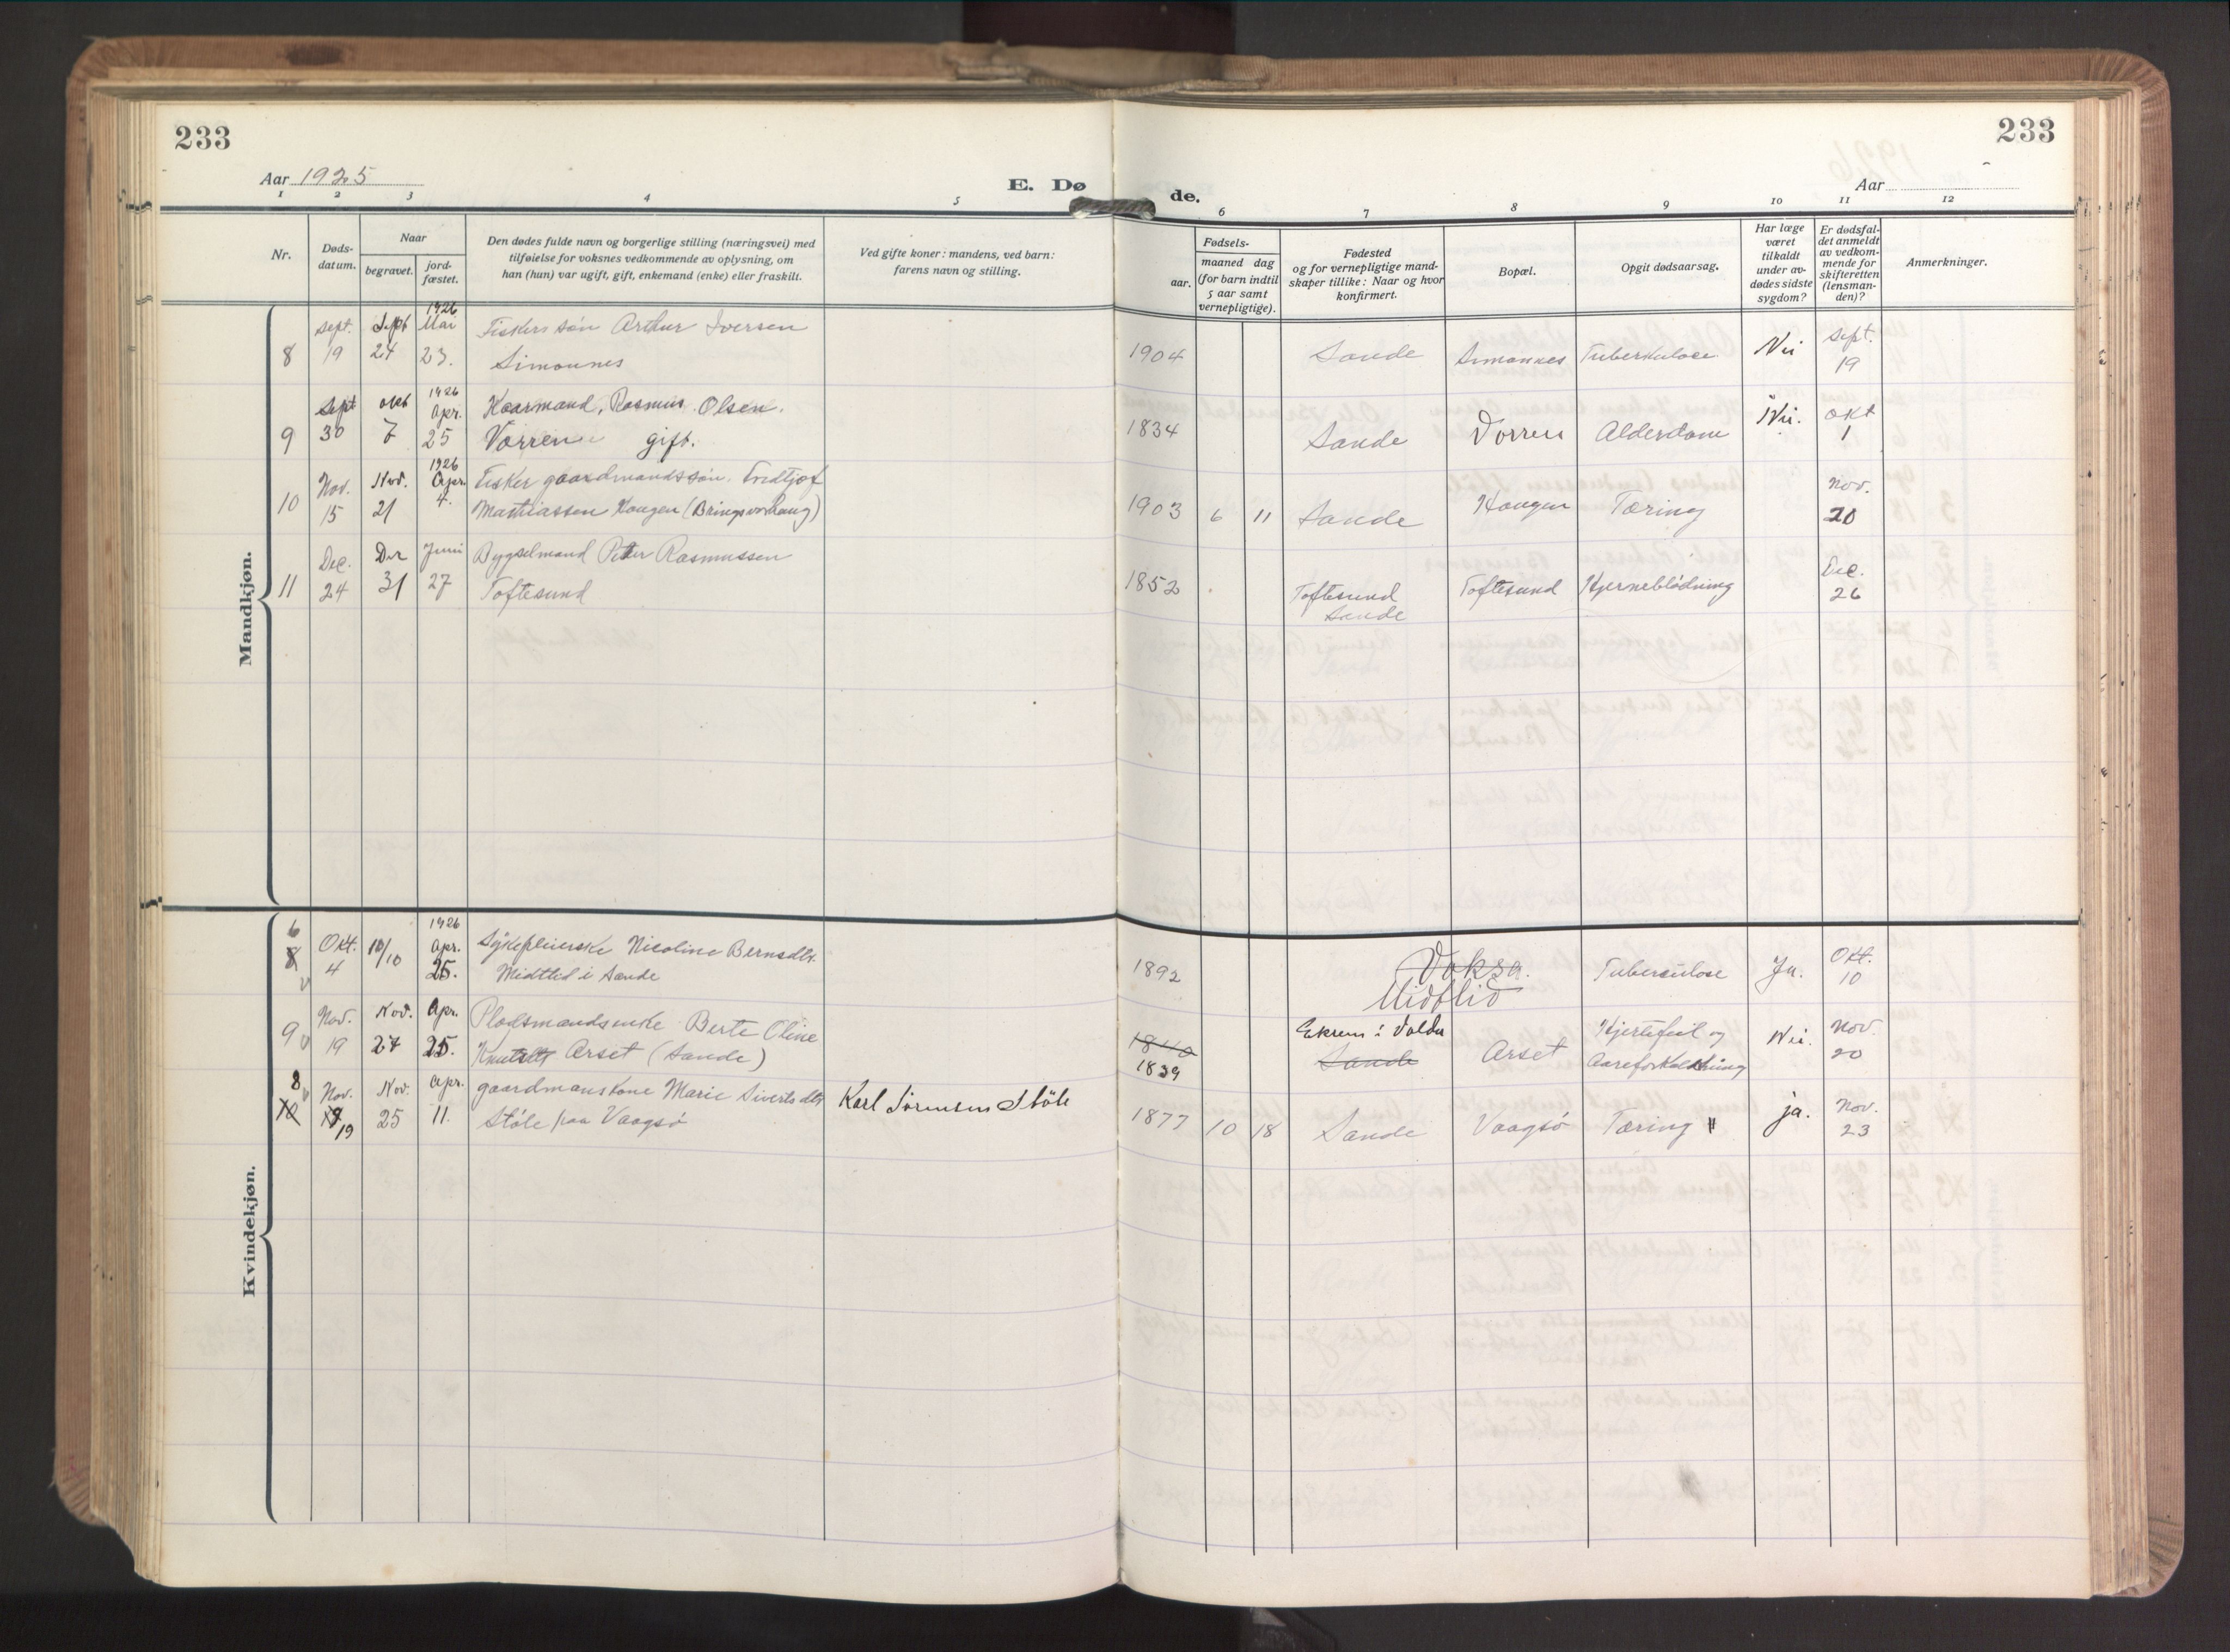 233
233
Aar 1925
E. Dø
de.
Aar
1 2 3 4 5 6 7 8 9 10 11 12
Nr.
Døds-
datum.
Naar
begravet.
jord-
fæstet.
Den dødes fulde navn og borgerlige stilling (næringsvei) med
tilføielse for voksnes vedkommende av oplysning, om
han (hun) var ugift, gift, enkemand (enke) eller fraskilt.
Ved gifte koner: mandens, ved barn:
farens navn og stilling.
Fødsels-
aar.
maaned dag
(for barn indtil
5 aar samt
vernepligtige).
Fødested
og for vernepligtige mand-
skaper tillike: Naar og hvor
konfirmert.
Bopæl.
Opgit dødsaarsag.
Har læge
været
tilkaldt
under av-
dødes sidste
sygdom?
Er dødsfal-
det anmeldt
av vedkom-
mende for
skifteretten
(lensman-
den)?
Anmerkninger.
Mandkjøn.
1926
Sept. Sept Mai Fiskers søn Arthur Iversen Sept.
8 19 24 23. Simonnes 1904 Sande Simonnes Tuberkulose Nei 19
1926
Sept okt Apr. Kaarmand, Rasmus Olsen. okt
9 30 7 25 Vorren gift. 1834 Sande Vorren Alderdom Nei. 1
1926
Nov. Nov. Apr. Fisker gaardmandssøn. Fridtjof Nov.
10 15 21 4. Mathiassen Haugen (Bringsvorhaug) 1903 6 11 Sande Haugen Tæring 20
Dec. Dec Juni Bygselmand Peter Rasmussen Dec.
11 24 31 27 Toftesund 1852 Toftesund Toftesund Hjerneblödning 26
Sande
Kvindekjøn.
6 1926
8 Okt. 10/10 Apr. Sykepleierske Nicoline Bernsdtr. Voksa. Okt.
4 25. Midtlid i Sande 1892 Midtlid Tuberculose Ja. 10
Nov. Nov. Apr. Pladsmandsenke Berte Oline 1840 Ekrem i Volda Hjertefeil og Nov.
9 19 27 25. Knutsdtr Arset (Sande) 1839 Sande Arset Aareforkalkning Nei. 20
8 Nov. Nov. Apr. gaardmanskone Marie Sivertsdtr Karl Sörensen Støle Nov.
10 19 25 11. Støle paa Vaagsö 1877 10 18 Sande Vaagsö Tæring ja. 23